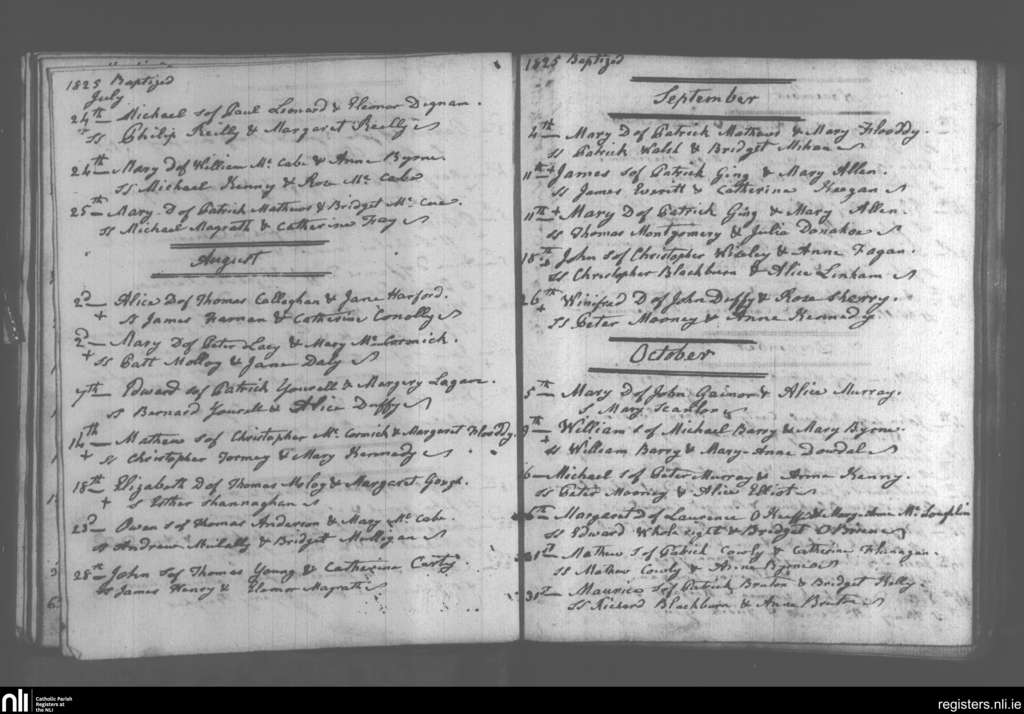 1825 Baptized
July
24th Michael S of Paul Leonard & Eleonor Dignam.
Ss Philip Reilly & Margaret Reilly
24th Mary D of William Mc Cabe & Anne Byrne.
Ss Michael Kenny & Rose Mc Cabe
25th Mary D of Patrick Mathews & Bridget Mc
Ss Michael Magrath & Catherine Fay
August
2d Alice D of Thomas Callaghan & Jane Harford.
+ Ss James Harnan & Catherine Conolly
2d Mary D of Peter Lacy & Mary Mc Cormick.
+ Ss Patt Molloy & Jane Daly
7th Edward S of Patrick Yourell & Margery Lagan.
Ss Bernard Yourell & Alice Duffy
14th Mathew S of Christopher Mc Cormick & Margaret Flooddy.
+ Ss Christopher Tormey & Mary Kennedy
18th Elizabeth D of Thomas Moloy & Margaret Gough.
+ S Esther Shannaghan
23d Owen S of Thomas Anderson & Mary Mc Cabe.
Ss Andrew Mulally & Bridget Mulligan
28th John S of Thomas Young & Catherine Carty.
Ss James Henry & Elenor Magrath
1825 Baptized
September
4th Mary D of Patrick Mathews & Mary Flooddy.
Ss Patrick Walsh & Bridget
11th + James S of Patrick Ging & Mary Allen.
Ss James Everitt & Catherine Keegan
11th + Mary D of Patrick Ging & Mary Allen.
Ss Thomas Montgomery & Julia Donahoe
18th John S of Christopher & Anne Fagan.
Ss Christopher Blackburn & Alice Linham
26th Winifred D of John Duffy & Rose Sherry.
+ Ss Peter Mooney & Anne Kennedy
October
5th Mary D of John Gainor & Alice Murray.
S Mary Scanlon
9th William S of Michael Barry & Mary Byrne.
+ Ss William Barry & Mary-Anne Dowdal
6 Michael S of Peter Murray & Anne Kenny.
Ss Peter Mooney & Alice Elliot
6th Margaret D of Laurence O Keeffe & Mary-Anne Mc Loughlin
Ss Edward & Bridget O Brien
Mathew S of Patrick Cowly & Catherine Flanagan.
Ss Mathew Cowly & Anne Byrne
Maurice S of Patrick Bruton & Bridget Kelly.
Ss Richard Blackburn & Anne Bruton
nli
Catholic Parish
Registers at
the NLI
registers.nli.ie